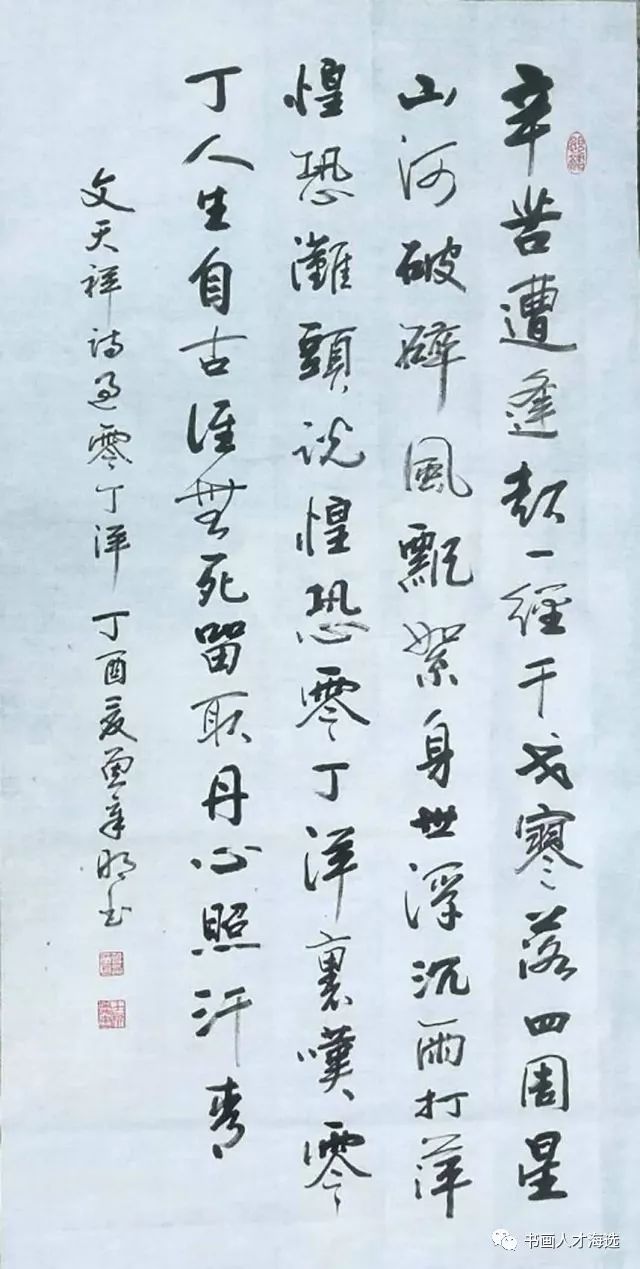 辛苦遭逢起一經干戈寥落四周星
山河破碎風飄絮身世浮沉雨打萍
惶恐灘頭説惶恐零丁洋裏嘆零
丁人生自古誰無死留取丹心照汗青
文天祥詩過零丁洋 丁酉夏 书
书画人才海选